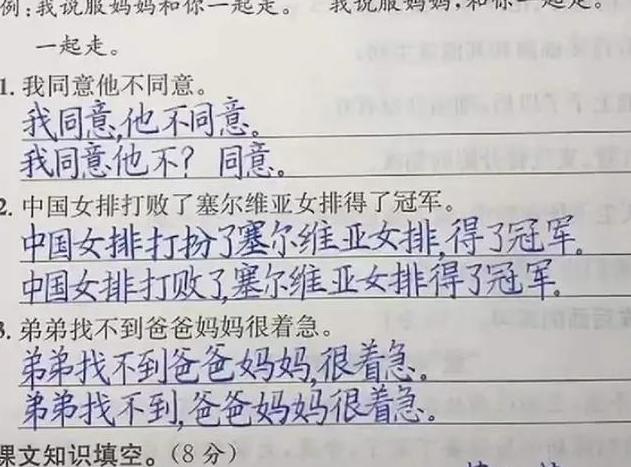 例:我说服妈妈和你一起走。 我说服妈妈,和你一起走。
一起走。
1. 我同意他不同意。
我同意,他不同意。
我同意他不? 同意。
2. 中国女排打败了塞尔维亚女排得了冠军。
中国女排打扮了塞尔维亚女排,得了冠军。
中国女排打败了,塞尔维亚女排得了冠军。
3. 弟弟找不到爸爸妈妈很着急。
弟弟找不到爸爸妈妈,很着急。
弟弟找不到,爸爸妈妈很着急。
课文知识填空。(8分)